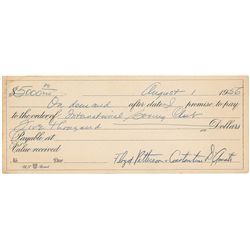 $5000 00 August 1 1956
On demand after date I promise to pay
to the order of International Boxing Club
Five thousand Dollars
Payable at
Value received
No. Due
Floyd Patterson Constantine D'Amato